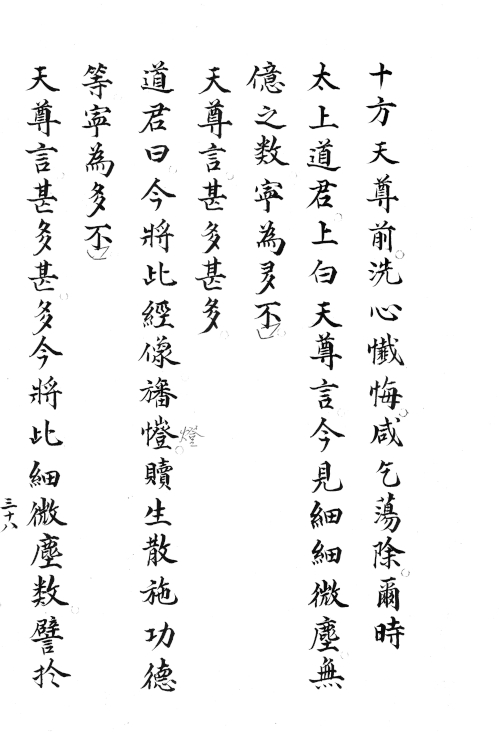 十方天尊前洗心懺悔咸乞蕩除爾時
太上道君上白天尊言今見細細微塵無
億之数寜為多不
天尊言甚多甚多
道君曰今將此經像旛憕贖生散施功德
燈
等寜為多不
天尊言甚多甚多今將此細微塵数譬扵
三十八